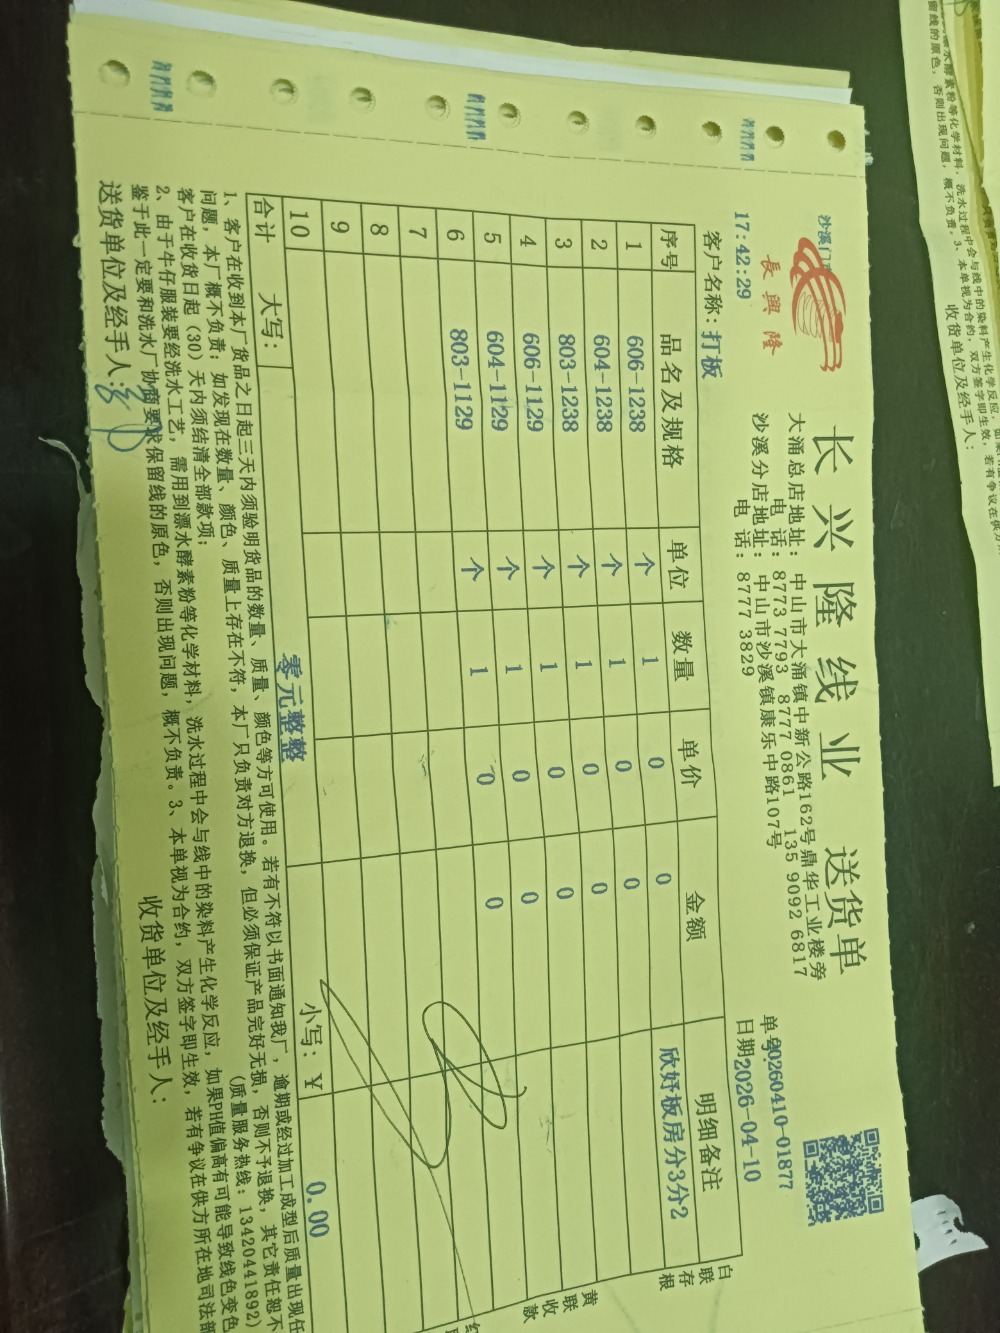 长兴隆线业 送货单
沙溪门
長興隆
大涌总店地址：中山市大涌镇中新公路162号鼎华工业楼旁
电 话：8773 7793 8777 0861 135 9092 6817
沙溪分店地址：中山市沙溪镇康乐中路107号
电 话：8777 3829
17:42:29
单号:20260410-01877
日期:2026-04-10
客户名称：打板
序号 品名及规格 单位 数量 单价 金额 明细备注
1 606-1238 个 1 0 0 欣妤板房分3分2
2 604-1238 个 1 0 0
3 803-1238 个 1 0 0
4 606-1129 个 1 0 0
5 604-1129 个 1 0 0
6 803-1129 个 1 0 0
7
8
9
10
合计 大写： 零元整整 小写：￥ 0.00
1、客户在收到本厂货品之日起三天内须验明货品的数量、质量、颜色等方可使用。若有不符以书面通知我厂，逾期或经过加工成型后质量出现任
问题，本厂概不负责；如发现在数量、颜色、质量上存在不符，本厂只负责对方退换，但必须保证产品完好无损，否则不予退换，其它责任恕不
客户在收货日起（30）天内须结清全部款项； （质量服务热线：13420441892）
2、由于牛仔服装要经洗水工艺，需用到漂水酵素粉等化学材料，洗水过程中会与线中的染料产生化学反应，如果PH值偏高有可能导致线色变色
鉴于此一定要和洗水厂协商要求保留线的原色，否则出现问题，概不负责。3、本单视为合约，双方签字即生效，若有争议在供方所在地司法部
送货单位及经手人： 收货单位及经手人：
白联存根
黄联收款